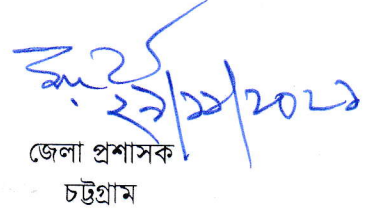 ২৯/১১/২০২১
জেলা প্রশাসক
চট্টগ্রাম